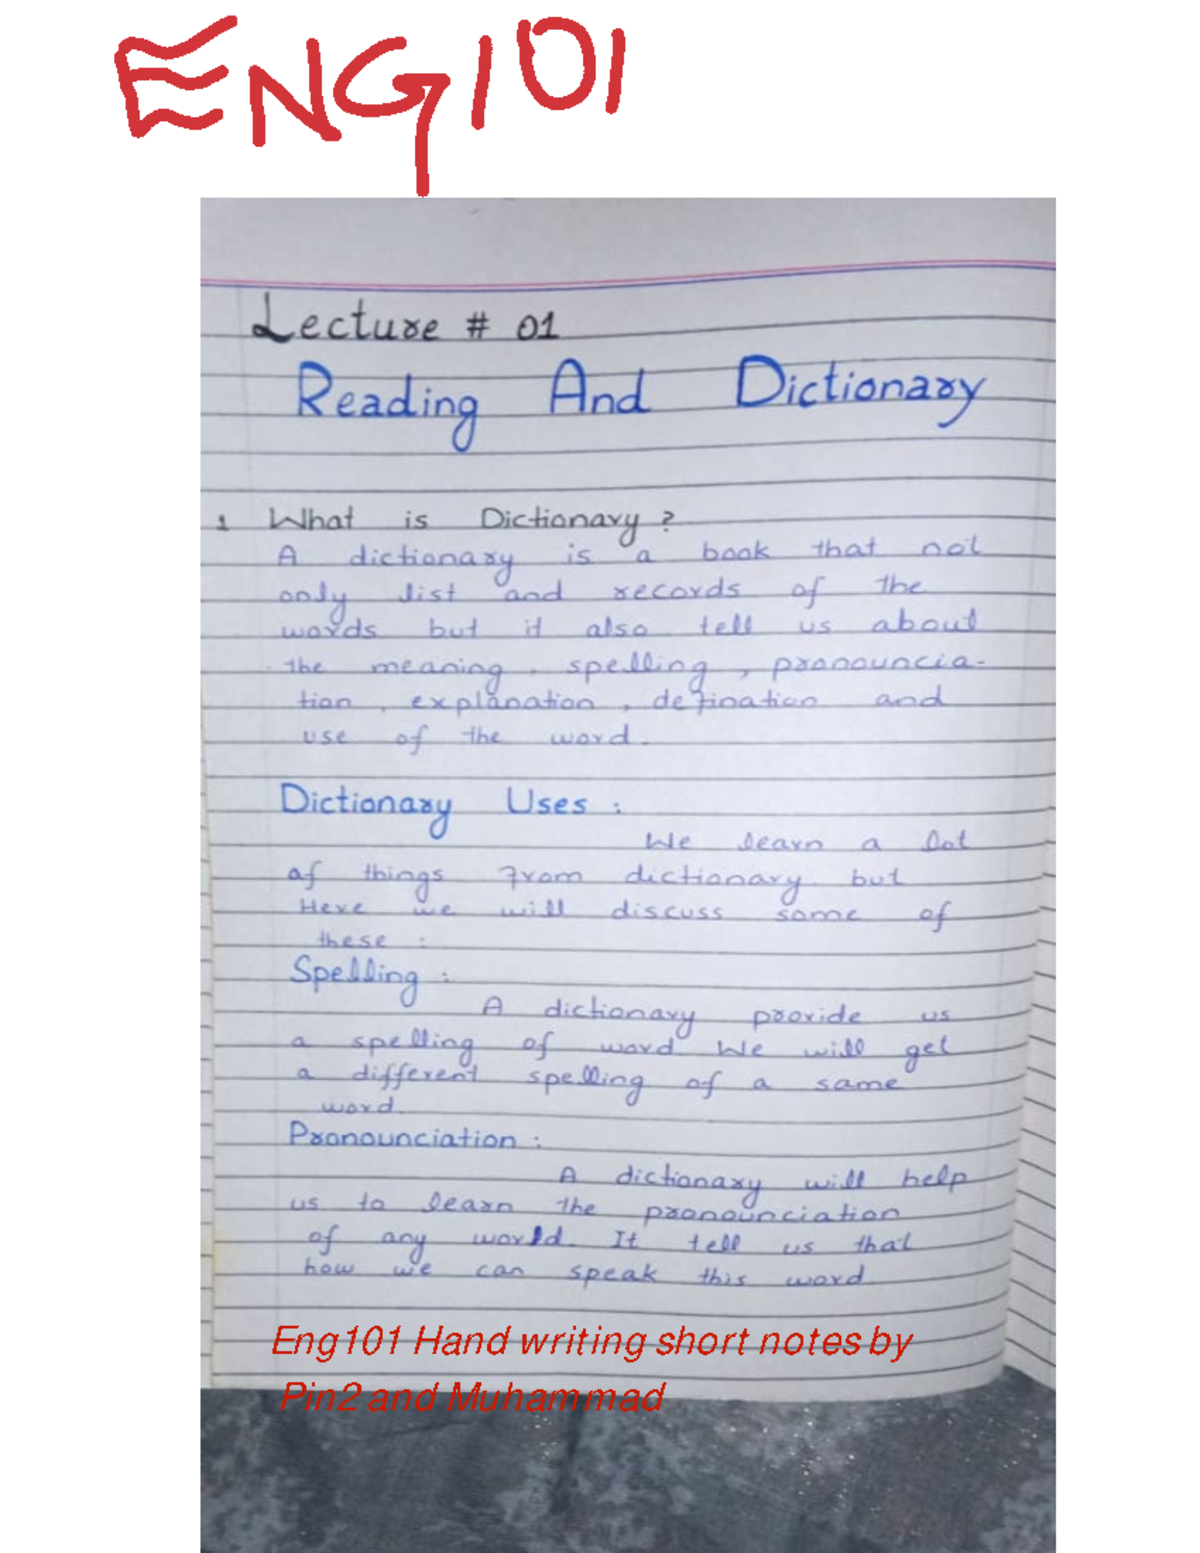 ENG101
Lecture # 01
Reading And Dictionary
1 What is Dictionary ?
A dictionary is a book that not
only list and records of the
words but it also tell us about
the meaning , spelling , pronouncia-
tion , explanation , defination and
use of the word.
Dictionary Uses :
We learn a lot
of things from dictionary but
Here we will discuss some of
these :
Spelling :
A dictionary provide us
a spelling of word. We will get
a different spelling of a same
word.
Pronounciation :
A dictionary will help
us to learn the pronounciation
of any world. It tell us that
how we can speak this word
Eng101 Hand writing short notes by
Pin2 and Muhammad